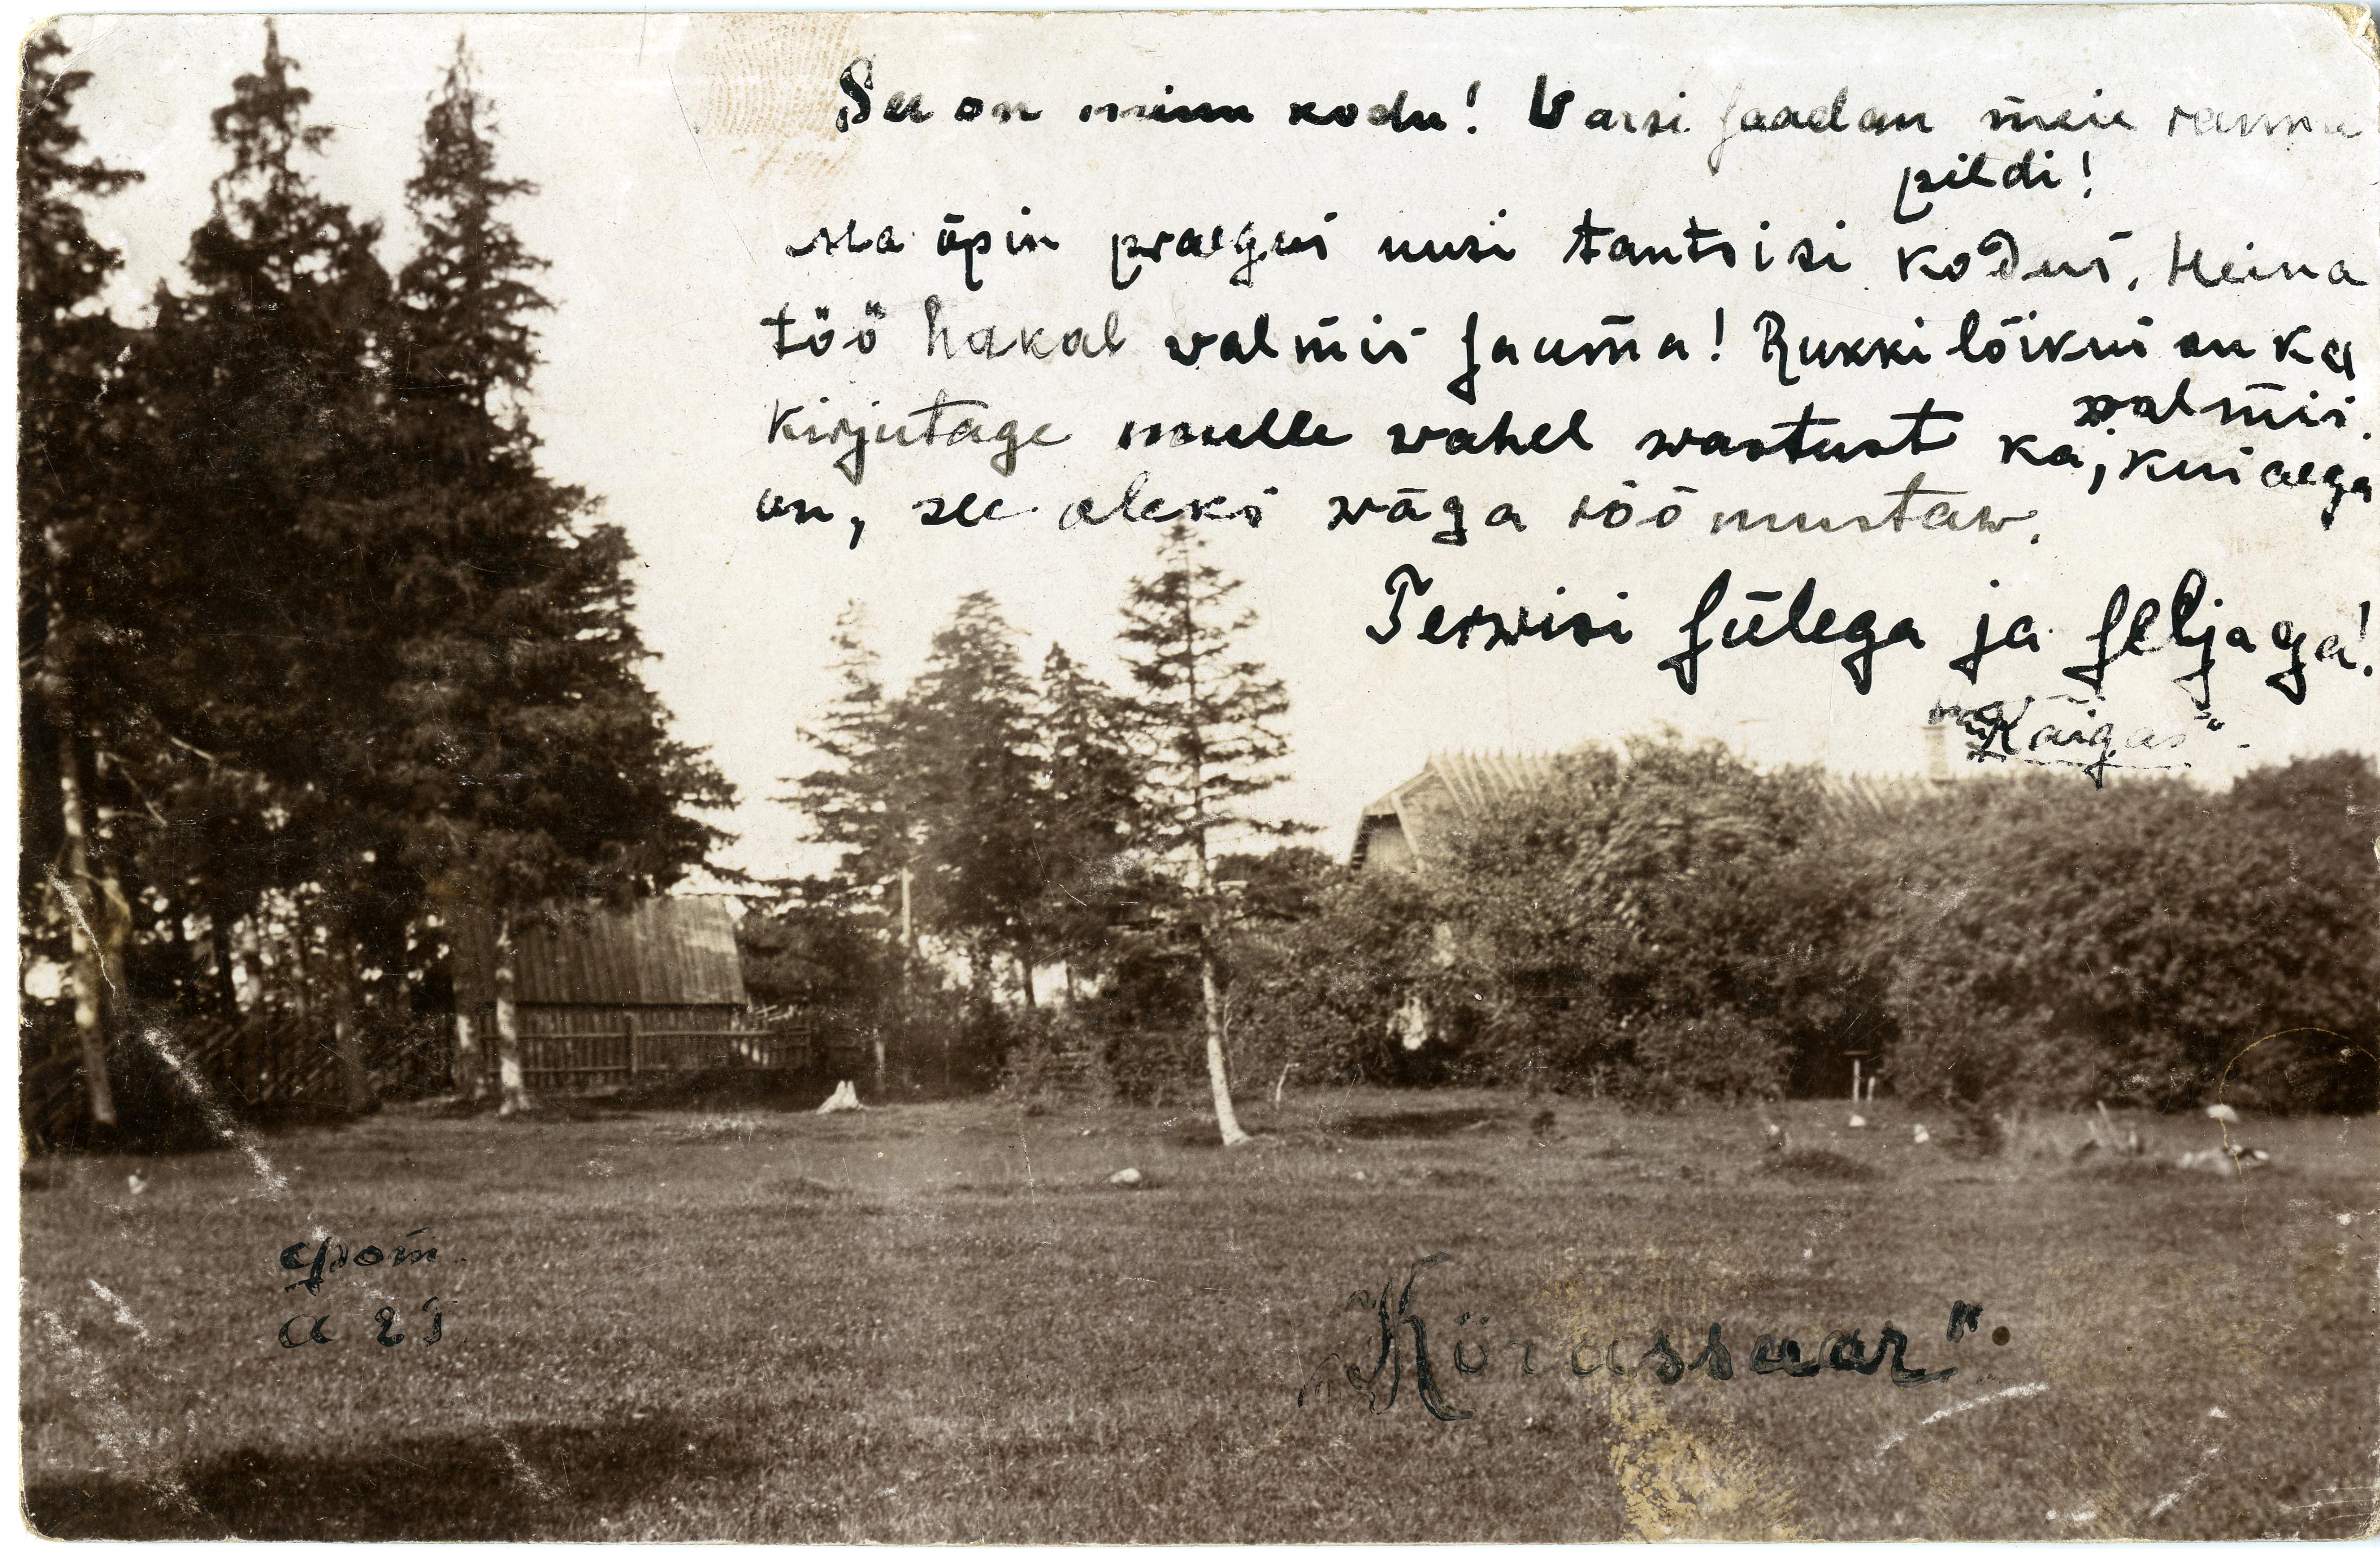 See on minu kodu! Varsi saadan meie ranna
pildi!
Ma õpin praegus uusi tantsisi kodus. Heina
töö hakab walmis sauma! Rukki lõikus on ka
walmis.
Kirjutage mulle wahel wastust ka, kui aega
on, see oleks wäga rõõmustaw.
Terwisi sülega ja seljaga!
"Käigas"
"Kõrassaar".
a 25